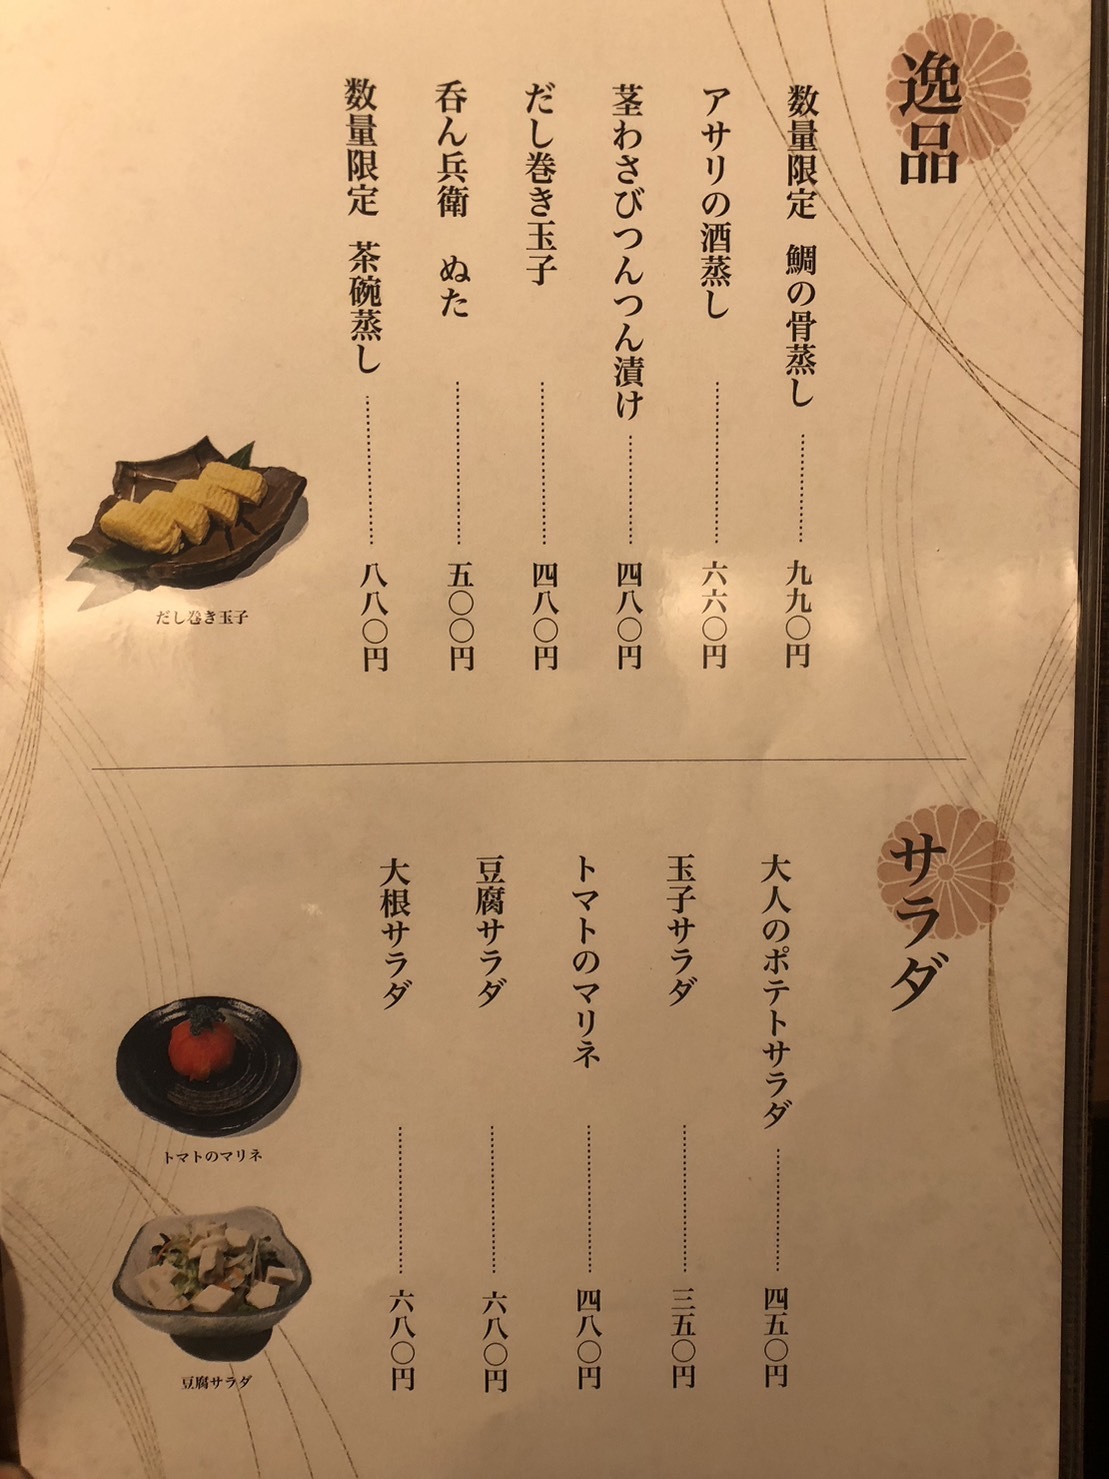 逸品
数量限定 鯛の骨蒸し 九九〇円
アサリの酒蒸し 六六〇円
茎わさびつんつん漬け 四八〇円
だし巻き玉子 四八〇円
呑ん兵衛 ぬた 五〇〇円
数量限定 茶碗蒸し 八八〇円
だし巻き玉子
サラダ
大人のポテトサラダ 四五〇円
玉子サラダ 三五〇円
トマトのマリネ 四八〇円
豆腐サラダ 六八〇円
大根サラダ 六八〇円
トマトのマリネ
豆腐サラダ